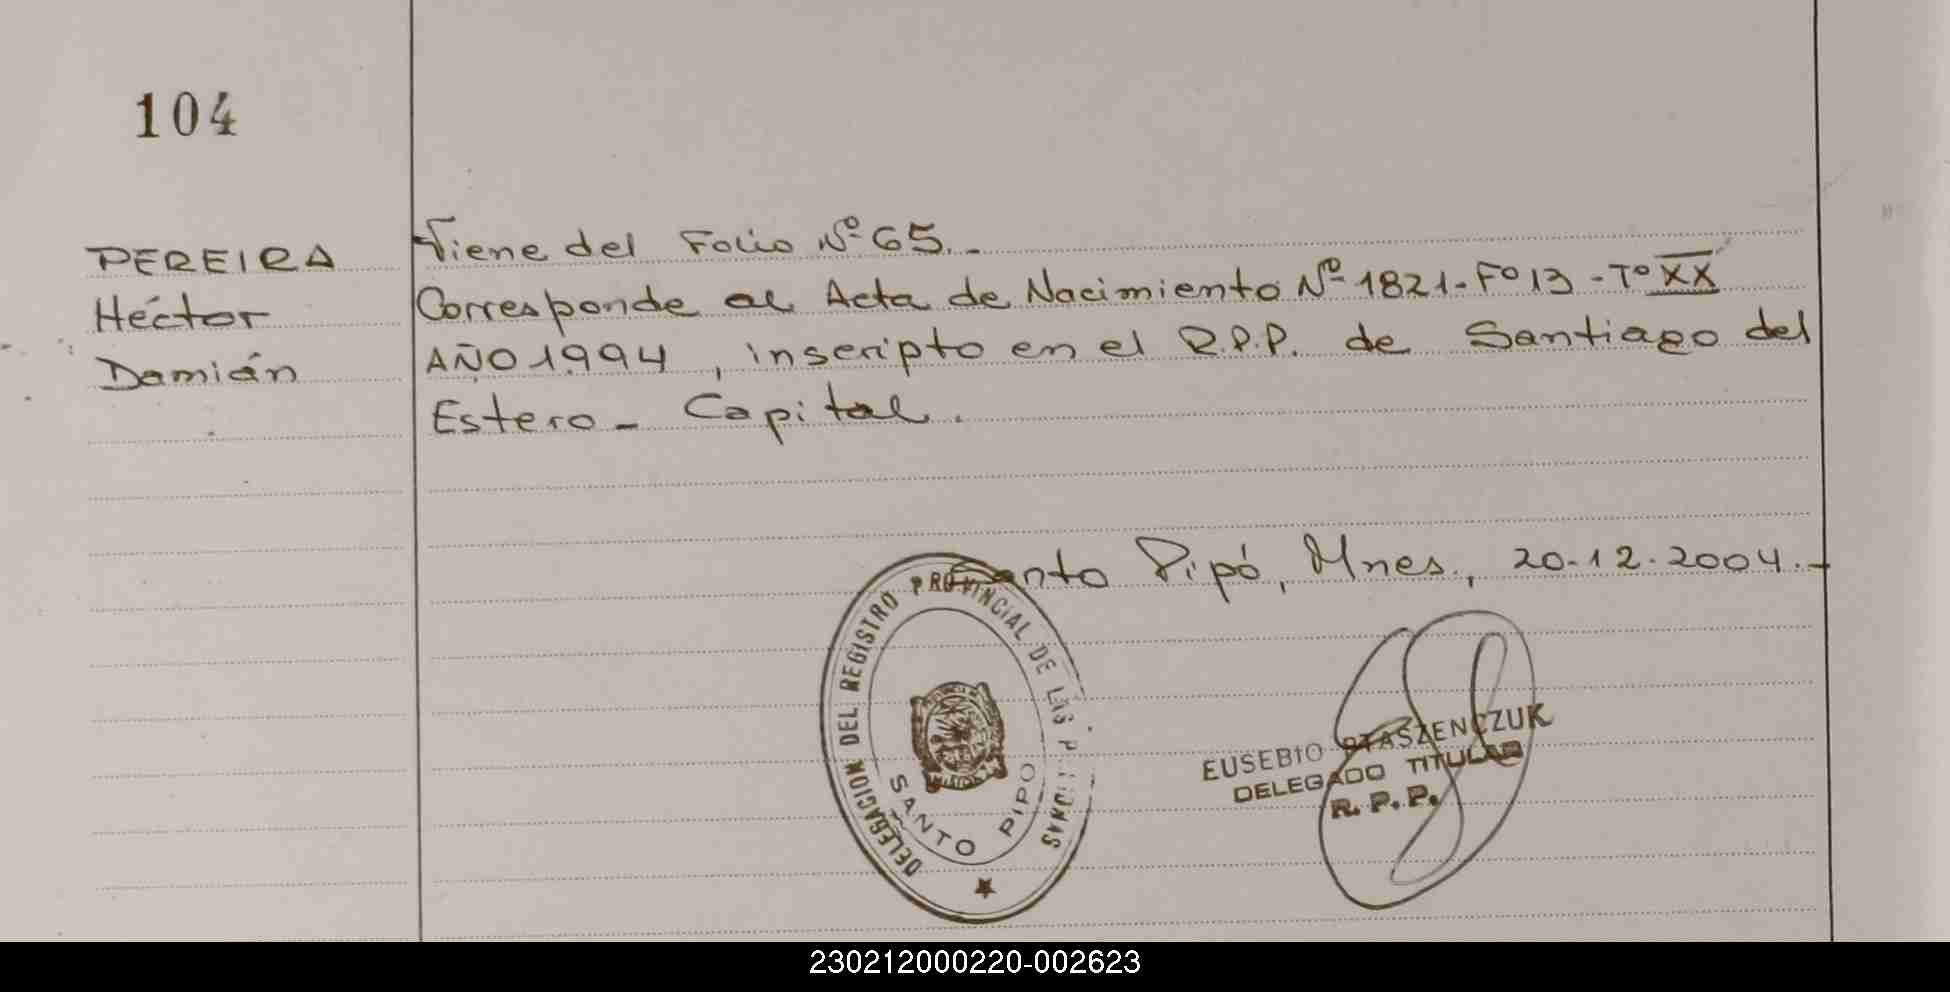 104
PEREIRA
Héctor
Damián
Viene del Folio Nº 65.-
Corresponde al Acta de Nacimiento Nº 1821-Fº13-Tº XX
AÑO 1994, inscripto en el R.P.P. de Santiago del
Estero - Capital.
Santo Pipó, Mnes., 20-12-2004.-
DELEGACION DEL REGISTRO PROVINCIAL DE LAS PERSONAS
SANTO PIPO
EUSEBIO STASZENCZUK
DELEGADO TITULAR
R. P. P.
230212000220-002623